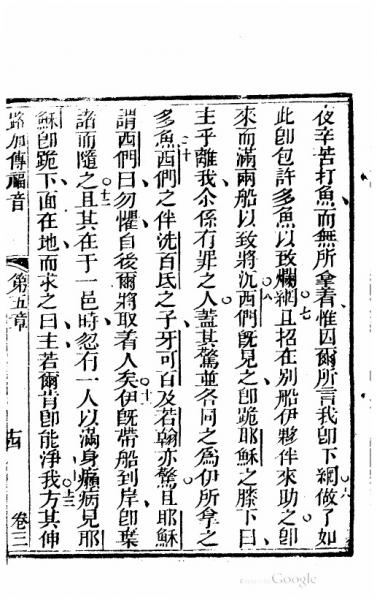 夜辛苦打魚而無所拿着惟因爾所言我卽下網六做了如
此卽包許多魚以致爛網七且招在別船伊夥伴來助之卽
來而滿兩船以致將沉八西們旣見之卽跪耶穌之膝下曰
主乎離我尒係有罪之人九蓋其驚並各同之爲伊所拿之
多魚十西們之伴洗百氏之子牙可百及若翰亦驚且耶穌
謂西們曰勿懼自後爾將取着人矣十一伊旣帶船到岸卽葉
諸而隨之十二且其在于一邑時忽有一人以滿身癩病見耶
穌卽跪下面在地而求之曰主若爾肯卽能淨我十三方其伸
路加傳福音 第五章 十四 卷三
Google